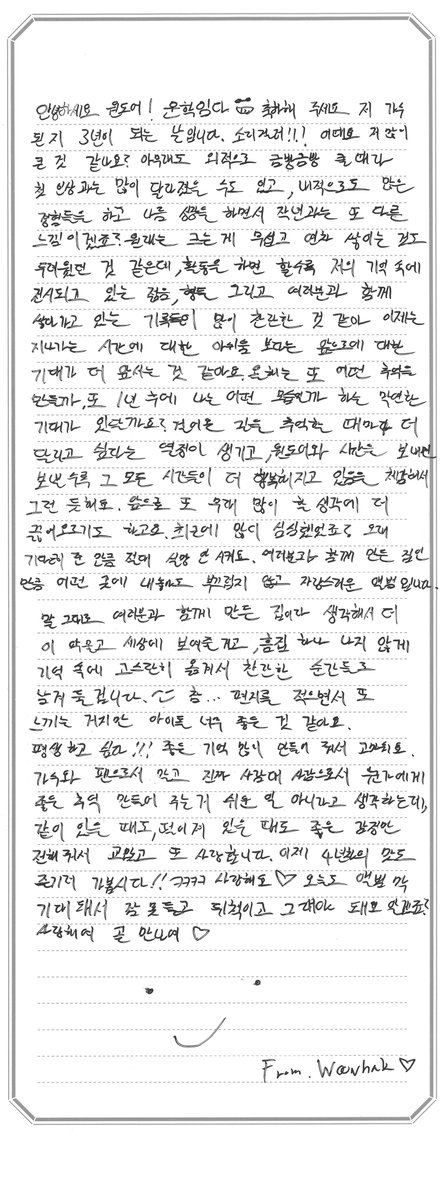 안녕하세요 원도어! 운학임다 축하해 주세요 저 가수
된지 3년이 되는 날입니다. 소리질러!!! 어때요 저 많이
큰 것 같나요? 아무래도 외적으로 금방금방 클 때라
첫 인상과는 많이 달라졌을 수도 있고, 내적으로도 많은
경험들을 하고 나름 성장을 하면서 작년과는 또 다른
느낌이겠죠? 원래는 크는 게 무섭고 변화 쌓이는 것도
두려웠던 것 같은데, 활동을 하면 할수록 저의 기억 속에
전시되고 있는 젊음, 형들 그리고 여러분과 함께
살아가고 있는 기록들이 많이 찬란한 것 같아 이제는
지나가는 시간에 대한 아쉬움 보다는 앞으로에 대한
기대가 더 앞서는 것 같아요. 올해는 또 어떤 추억을
만들까, 또 1년 후에 나는 어떤 모습일까 하는 막연한
기대가 있달까요? 걸어온 길을 추억할 때마다 더
달리고 싶다는 열정이 생기고, 원도어와 시간을 보내면
보낼수록 그 모든 시간들이 더 행복해지고 있음을 체감해서
그런 듯해요. 앞으로 또 우래 많이 할 생각에 더
끓어오르기도 하고요. 최근에 많이 심심했었죠? 오래
기다려 준 만큼 절대 실망 안 시켜요. 여러분과 함께 만든 집인
만큼 어떤 곳에 내놔도 부끄럽지 않고 자랑스러운 앨범입니다.
말 그대로 여러분과 함께 만든 집이다 생각해서 더
이 악물고 세상에 보여줄거고, 흠집 하나 나지 않게
기억 속에 고스란히 옮겨서 찬란한 순간들로
남겨 둘겁니다. 참... 편지를 적으면서 또
느끼는 거지만 아이돌 너무 좋은 것 같아요.
평생 하고 싶다!!! 좋은 기억 많이 만들어 줘서 고마워요.
가수와 팬으로서 만나고 진짜 사람 대 사람으로서 누군가에게
좋은 추억 만들어 주는 게 쉬운 일 아니라고 생각하는데,
같이 있을 때도, 떨어져 있을 때도 좋은 감정만
전해줘서 고맙고 또 사랑합니다. 이제 4년차의 맛도
즐기러 가봅시다!! ㅋㅋㅋㅋ 사랑해요♡ 오늘도 앨범 막
기대 돼서 잠 못 들고 뒤척이고 그래야 돼요 알겠죠?
사랑해여 곧 만나여 ♡
From. Woonhak♡